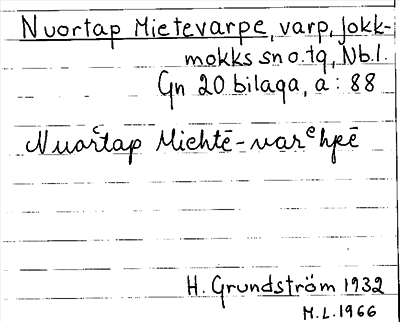 Nuortap Mietevarpe, varp, Jokk-
mokks sn o. tg, Nb.l.
Gn 20 bilaga, a: 88
Nuarᵋtap Miehtē-varᵉhpē
H. Grundström 1932
M.L. 1966